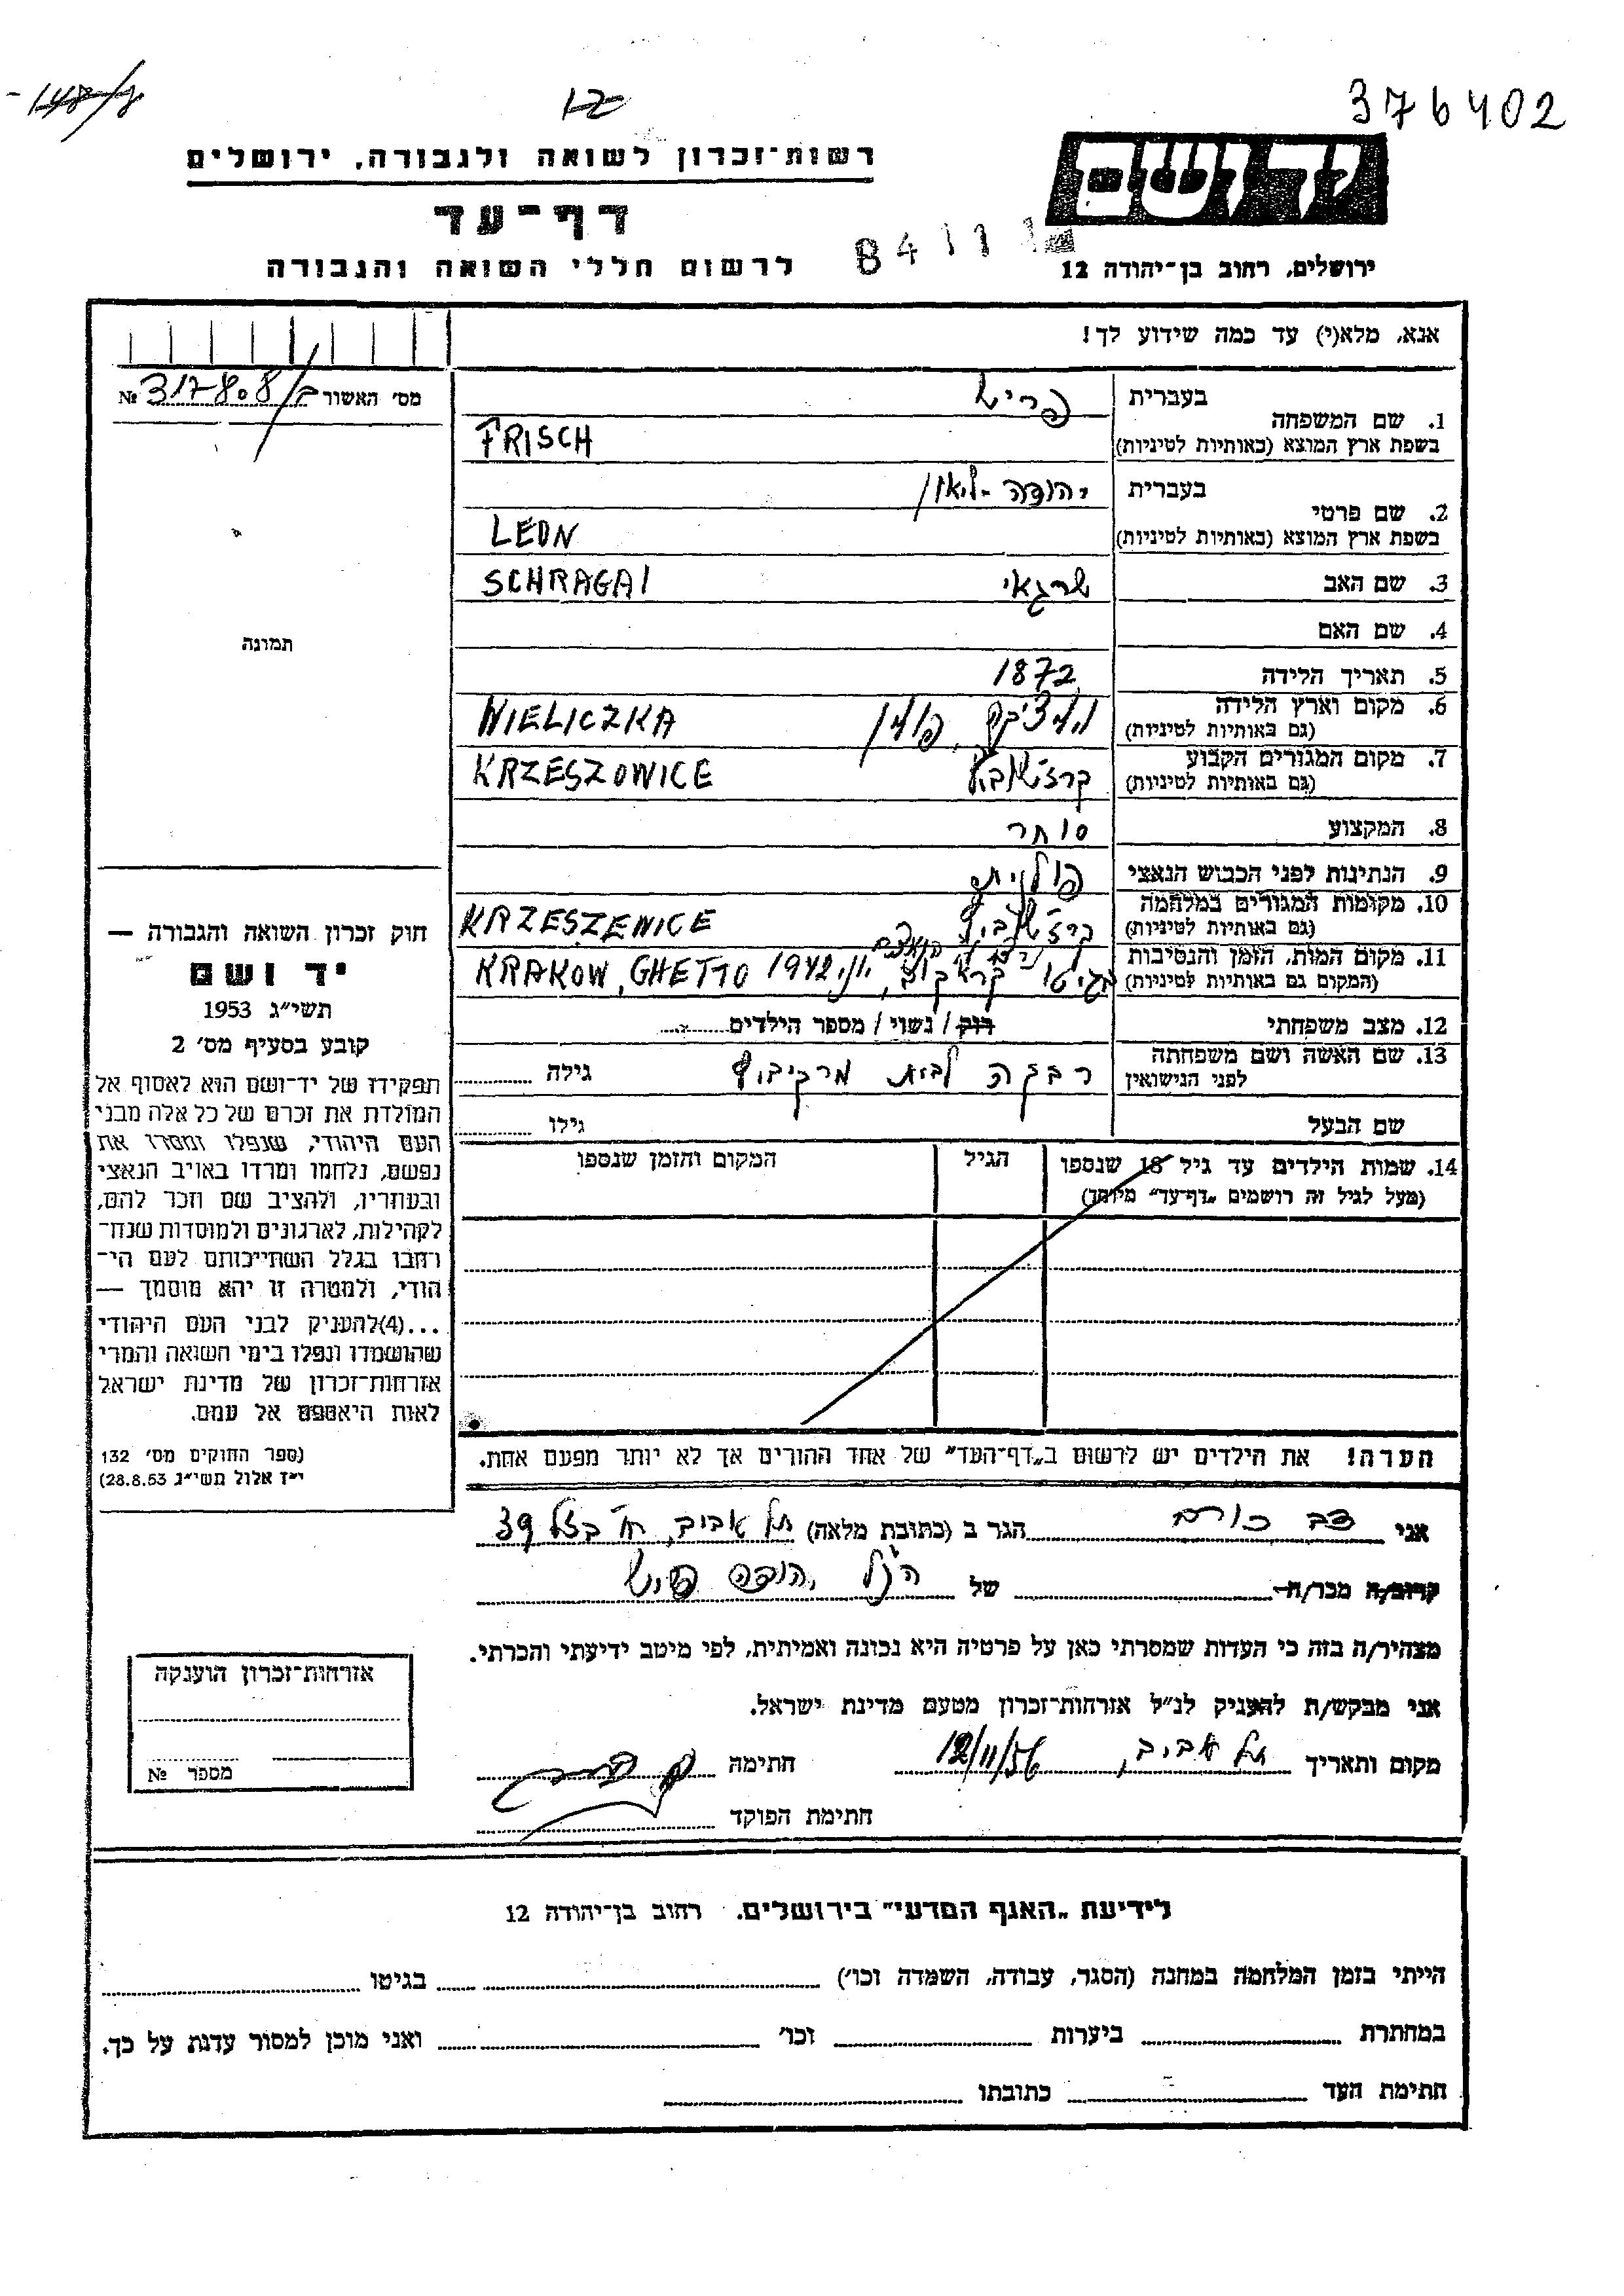 148/8
12
376402
רשות־זכרון לשואה ולגבורה, ירושלים
דף־עד
לרשום חללי השואה והגבורה
ידושם
ירושלים, רחוב בן־יהודה 12
אנא, מלא(י) עד כמה שידוע לך!
מס׳ האשור № 317808
בעברית פריש
1. שם המשפחה
בשפת ארץ המוצא (באותיות לטיניות) FRISCH
בעברית יהודה - ליאון
2. שם פרטי
בשפת ארץ המוצא (באותיות לטיניות) LEON
3. שם האב שרגאי SCHRAGAI
4. שם האם
תמונה
5. תאריך הלידה 1872
6. מקום וארץ הלידה
(גם באותיות לטיניות) פולין WIELICZKA
7. מקום המגורים הקבוע
(גם באותיות לטיניות) KRZESZOWICE
8. המקצוע סוחר
9. הנתינות לפני הכבוש הנאצי פולנית
10. מקומות המגורים במלחמה
(גם באותיות לטיניות) KRZESZEWICE
11. מקום המות, הזמן והנסיבות
(המקום גם באותיות לטיניות) בגיטו קראקוב, יוני 1942 KRAKOW, GHETTO
12. מצב משפחתי רוק / נשוי / מספר הילדים
13. שם האשה ושם משפחתה
לפני הנישואין רבקה לבית מרקיבוץ גילה
שם הבעל גילו
14. שמות הילדים עד גיל 18 שנספו הגיל המקום והזמן שנספו
(מעל לגיל זה רושמים „דף־עד” מיוחד)
הערה! את הילדים יש לרשום ב„דף־העד” של אחד ההורים אך לא יותר מפעם אחת.
חוק זכרון השואה והגבורה —
יד ושם
תשי״ג 1953
קובע בסעיף מס׳ 2
תפקידו של יד־ושם הוא לאסוף אל
המולדת את זכרם של כל אלה מבני
העם היהודי, שנפלו ומסרו את
נפשם, נלחמו ומרדו באויב הנאצי
ובעוזריו, ולהציב שם וזכר להם,
לקהילות, לארגונים ולמוסדות שנח־
רבו בגלל השתייכותם לעם הי־
הודי, ולמטרה זו יהא מוסמך —
...(4)להעניק לבני העם היהודי
שהושמדו ונפלו בימי השואה והמרי
אזרחות־זכרון של מדינת ישראל
לאות היאספם אל עמם.
(ספר החוקים מס׳ 132
י״ז אלול תשי״ג 28.8.53)
אני צבי הגר ב (כתובת מלאה) תל אביב, רח׳ 39
קרוב/ה מכר/ה של הנ״ל יהודה פריש
מצהיר/ה בזה כי העדות שמסרתי כאן על פרטיה היא נכונה ואמיתית, לפי מיטב ידיעתי והכרתי.
אני מבקש/ת להעניק לנ״ל אזרחות־זכרון מטעם מדינת ישראל.
מקום ותאריך תל אביב, 12/11/56 חתימה
חתימת הפוקד
אזרחות־זכרון הוענקה
מספר №
לידיעת „האגף המדעי” בירושלים. רחוב בן־יהודה 12
הייתי בזמן המלחמה במחנה (הסגר, עבודה, השמדה וכו׳) בגיטו
במחתרת ביערות וכו׳ ואני מוכן למסור עדות על כך.
חתימת העד כתובתו